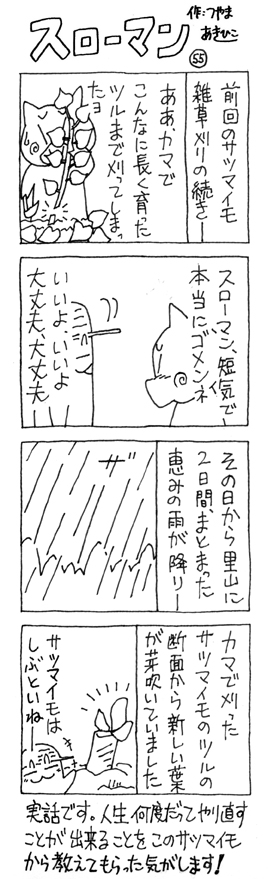 作：つやま
あきひこ
スローマン
55
前回のサツマイモ
雑草刈りの続きー
ああ、カマで
こんなに長く育った
ツルまで刈ってしまっ
たョ
スローマン、短気で
本当にゴメンネ
いいよ、いいよ
大丈夫、大丈夫ー
その日から里山に
2日間、まとまった
恵みの雨が降りー
ザー
カマで刈った
サツマイモのツルの
断面から新しい葉
が芽吹いていました
サツマイモは
しぶといねー
実話です。人生、何度だってやり直す
ことが出来ることをこのサツマイモ
から教えてもらった気がします！